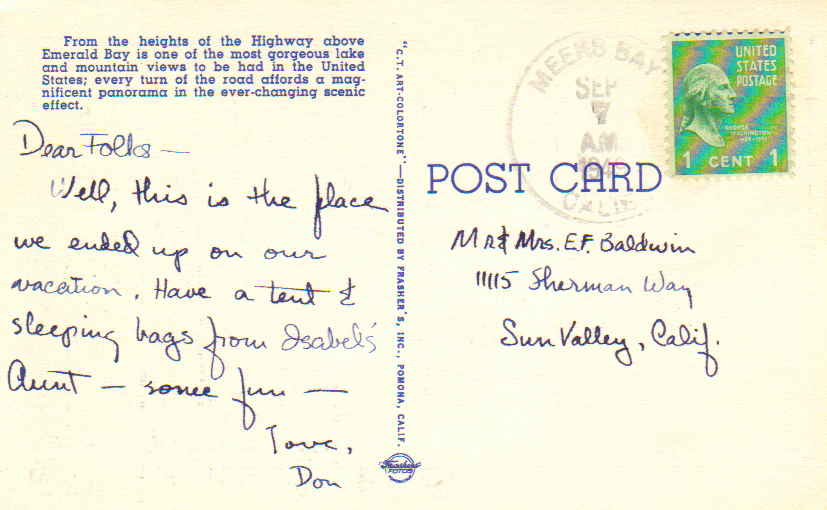 From the heights of the Highway above
Emerald Bay is one of the most gorgeous lake
and mountain views to be had in the United
States; every turn of the road affords a mag-
nificent panorama in the ever-changing scenic
effect.
Dear Folks —
Well, this is the place
we ended up on our
vacation. Have a tent &
sleeping bags from Isabel's
Aunt — some fun —
Love,
Don
"C.T. ART-COLORTONE"—DISTRIBUTED BY FRASHER'S, INC., POMONA, CALIF.
Frashers
FOTOS
MEEKS BAY
SEP
7
AM
CALIF.
UNITED
STATES
POSTAGE
GEORGE
WASHINGTON
1 CENT 1
POST CARD
Mr & Mrs. E.F. Baldwin
11115 Sherman Way
Sun Valley, Calif.